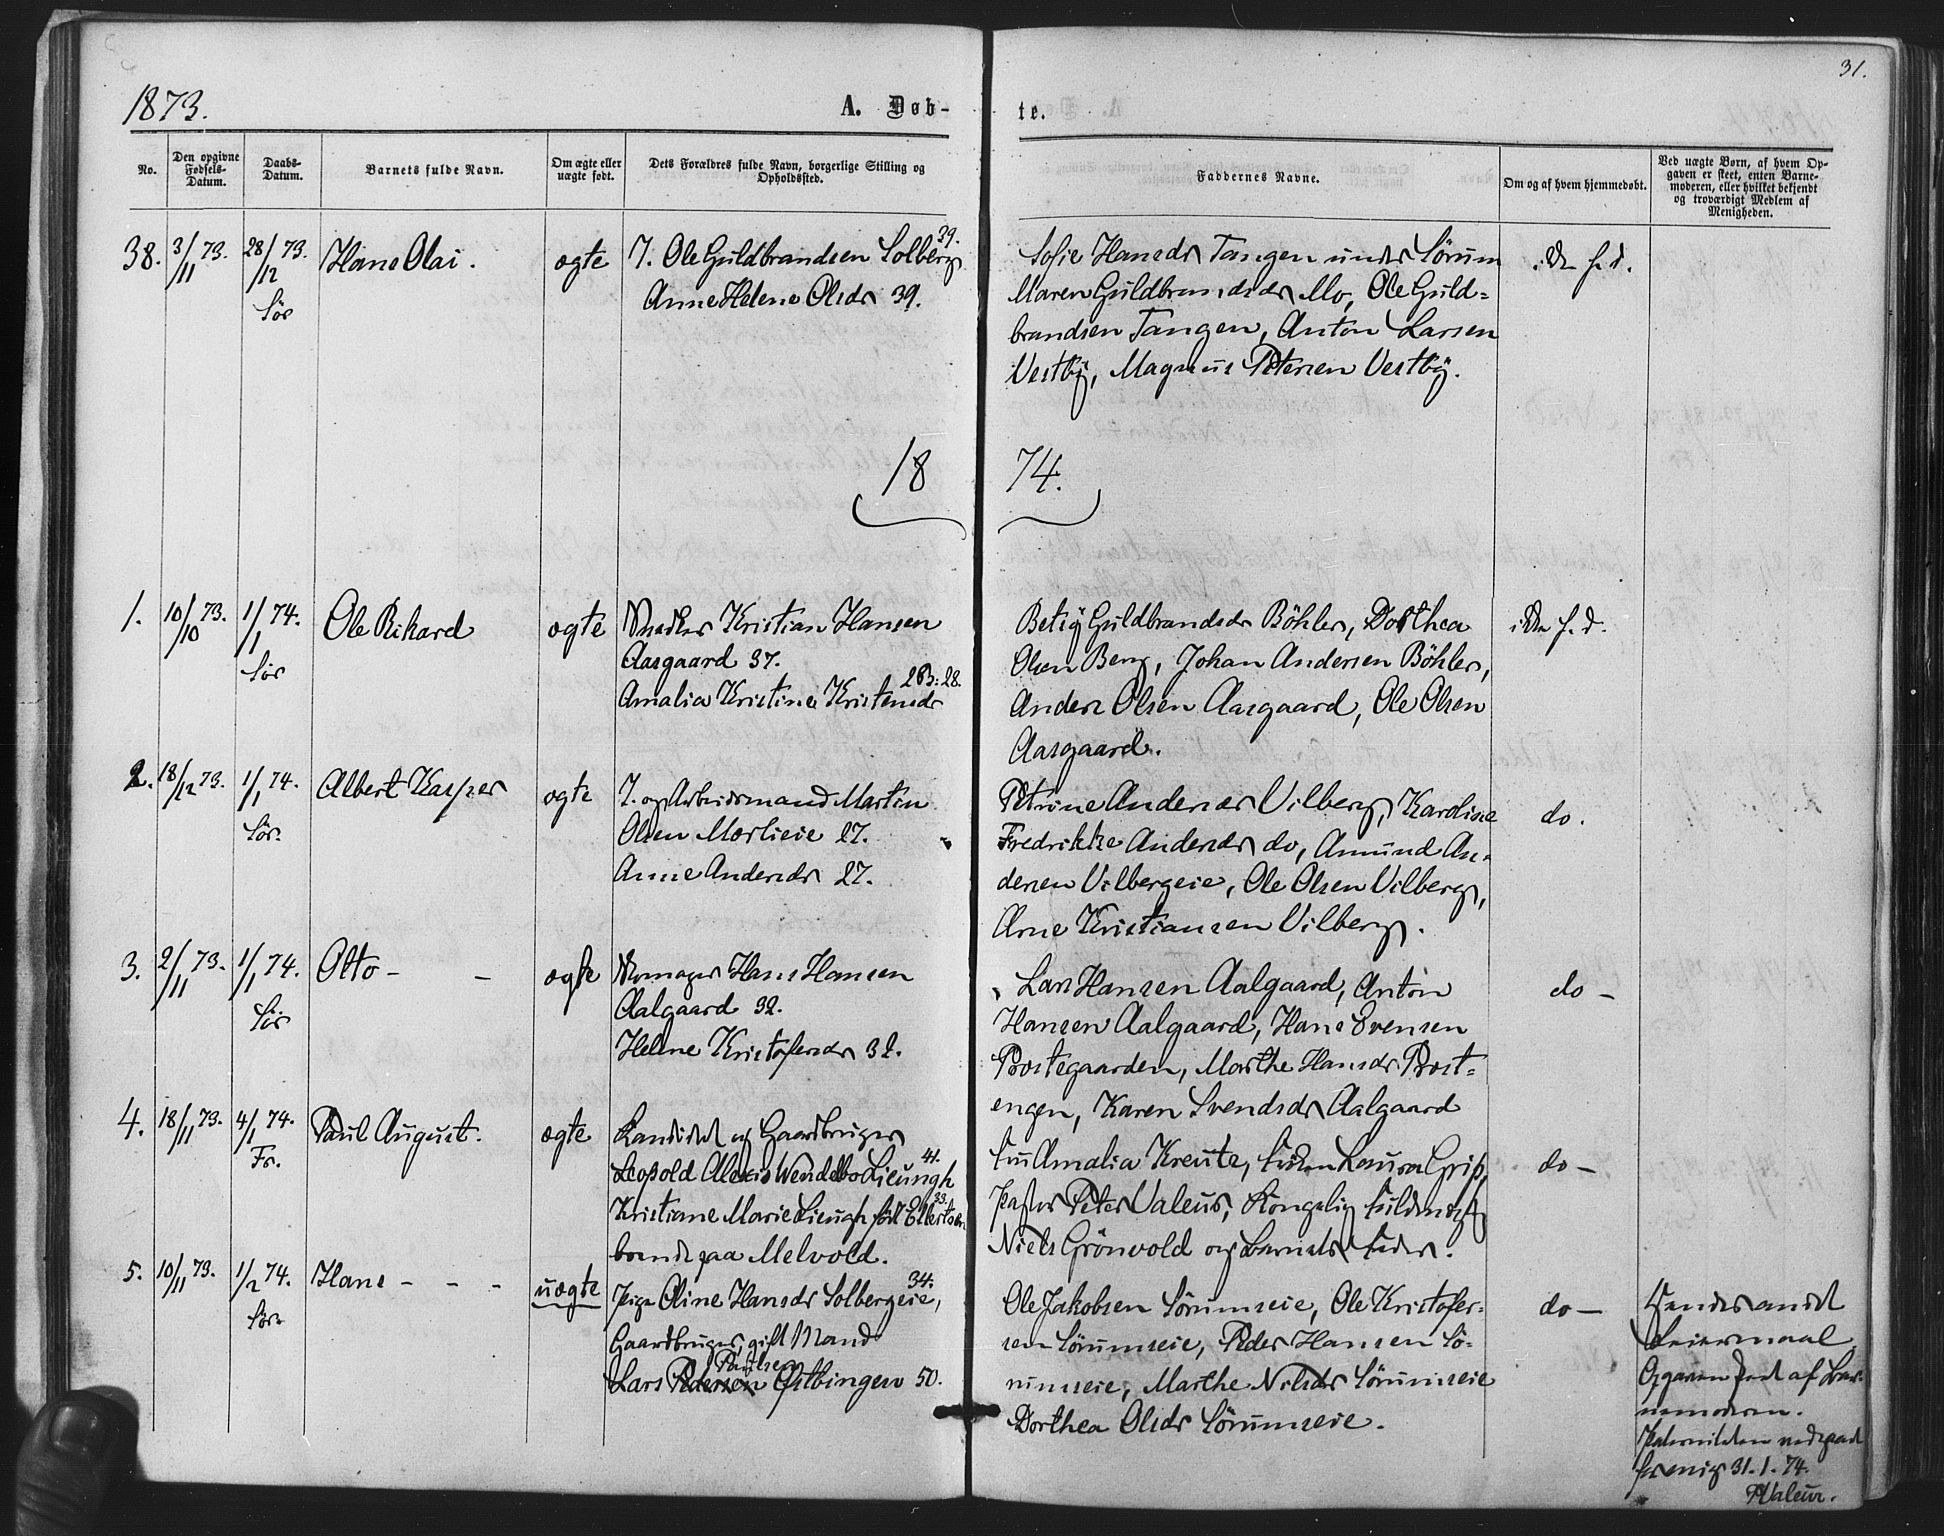 31.
1873.
A. Døb-
te.
No.
Den opgivne Fødsels-Datum.
Daabs-Datum.
Barnets fulde Navn.
Om ægte eller uægte født.
Dets Forældres fulde Navn, borgerlige Stilling og Opholdssted.
Faddernes Navne.
Om og af hvem hjemmedøbt.
Ved uægte Børn, af hvem Op-
gaven er skeet, enten Barne-
moderen, eller hvilket bekjendt
og troværdigt Medlem af
Menigheden.
38. 3/11 73. 28/12 73. Sør
Hans Olai.
ægte
I. Ole Guldbrandsen Solberg 39.
Anne Helene Olsdr 39.
Sofie Hansdr Tangen under Sørum
Maren Guldbrandsdr Mo, Ole Guld=
brandsen Tangen, Anton Larsen
Vestby, Magnus Petersen Vestby.
ikke h. d.
18 74.
1. 10/10 73. 1/1 74. Sør
Ole Rikard
ægte
Snedker Kristian Hansen
Aasgaard 37.
Amalia Kristine Kristensdr 28.
Betzy Guldbrandsdr Böhler, Dorthea
Olsen Berg, Johan Andersen Böhler,
Anders Olsen Aasgaard, Ole Olsen
Aasgaard.
ikke h. d.
2. 18/12 73. 1/1 74. Sør.
Albert Kasper
ægte
I. og Arbeidsmand Martin
Olsen Morlieie 27.
Anne Andersdr 27.
Petrine Andersdr Vilberg, Karoline
Fredrikke Andersdr do, Amund An-
dersen Vilbergeie, Ole Olsen Vilberg,
Arne Kristiansen Vilberg.
do.
3. 2/11 73. 1/1 74. Sør
Otto - -
ægte
Skomager Hans Hansen
Aalgaard 32.
Helene Kristofersdr 32.
Lars Hansen Aalgaard, Anton
Hansen Aalgaard, Hans Evensen
Prostegaarden, Marthe Hansdr Prest-
engen, Karen Svendsdr Aalgaard
do -
4. 18/11 73. 4/1 74. Fr.
Paul August.
ægte
Kandidat og Gaardbruger
Leopold Alexis Wendelbo Lieungh 41.
Kristiane Marie Lieungh født Elbertsen 33.
boende paa Melvold.
Fru Amalia Kreutz, Frøken Laura Grip,
Pastor Peter Valeur, Kongelig Fuldmægt
Niels Grönvold og Barnets Fader.
do -
5. 10/11 73. 1/2 74. Sør
Hans - - -
uægte
Pige Oline Hansdr Solbergeie, 34.
Gaardbruger, gift Mand
Paulsen
Lars Pedersen Østbingen 50.
Ole Jakobsen Sörumseie, Ole Kristofer=
sen Sörumseie, Peder Hansen Sö-
rumseie, Marthe Nilsdr Sörumseie
Dorthea Olsdr Sörumseie.
do -
Hendes andet
Leiermaal
Opgaven skeet af Bar-
nemoderen.
Paterniteten vedgaaet
31.1.74.
PValeur.